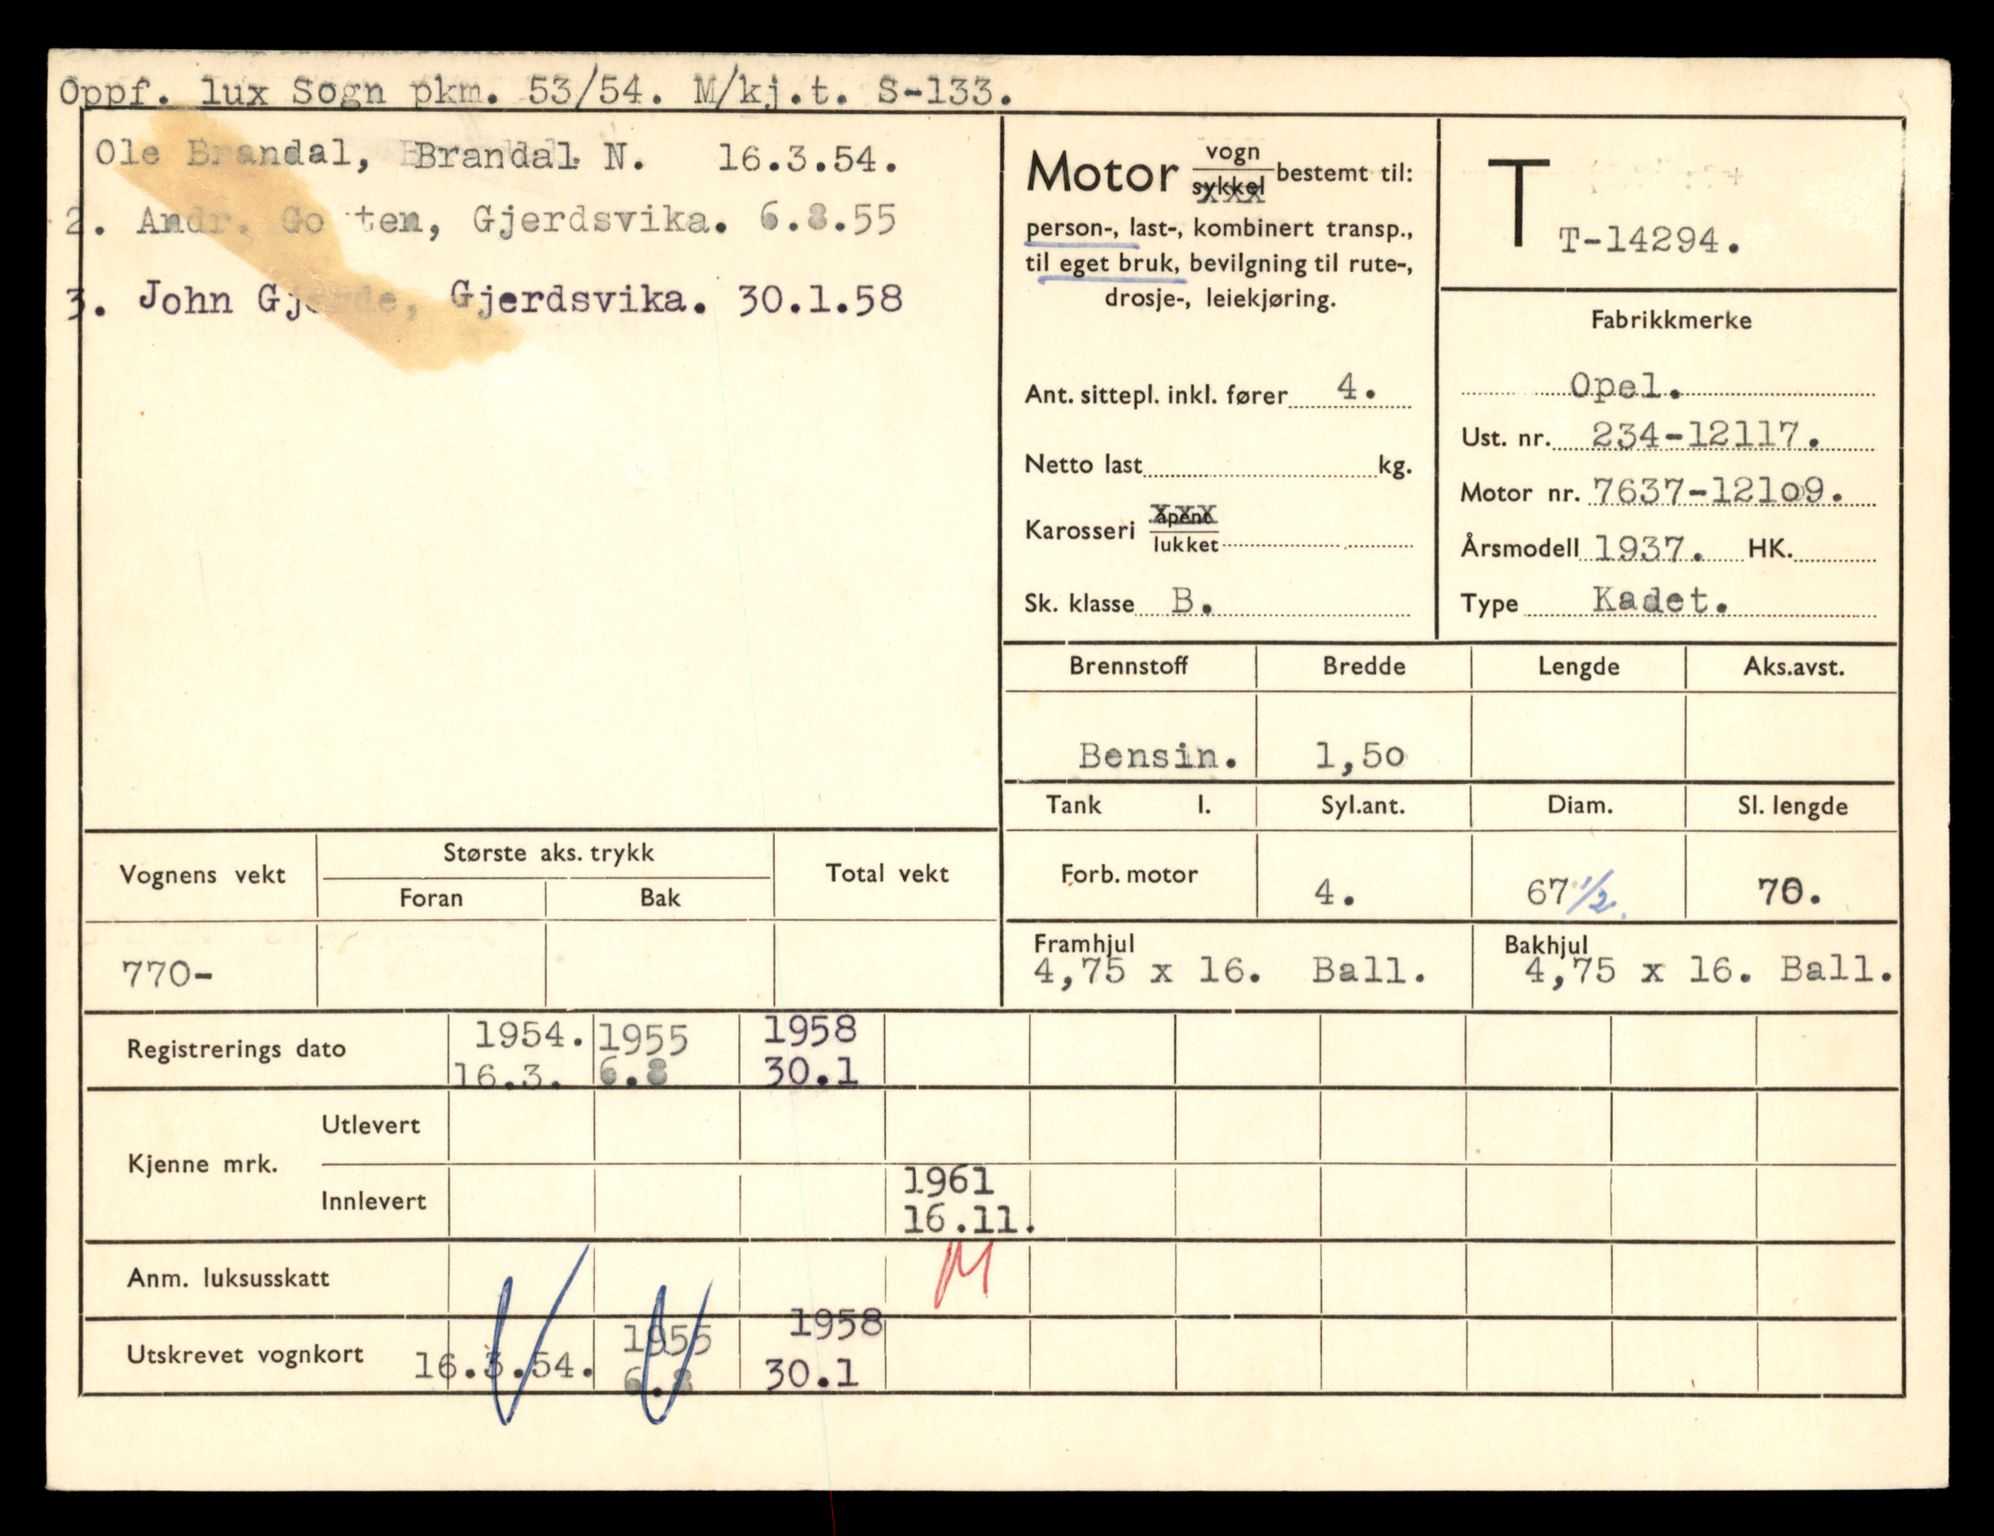 Oppf. lux Sogn pkm. 53/54. M/kj.t. S-133.
Ole Brandal, Brandal N. 16.3.54.
2. Andr. Gjerdsvika. 6.8.55
3. John Gjerde, Gjerdsvika. 30.1.58
Motor vogn sykkel bestemt til:
person-, last-, kombinert transp.,
til eget bruk, bevilgning til rute-,
drosje-, leiekjøring.
Ant. sittepl. inkl. fører 4.
Netto last kg.
Karosseri åpent lukket
Sk. klasse B.
T T-14294.
Fabrikkmerke
Opel.
Ust. nr. 234-12117.
Motor nr. 7637-12109.
Årsmodell 1937. HK.
Type Kadet.
Brennstoff Bredde Lengde Aks.avst.
Bensin. 1,50
Tank l. Syl.ant. Diam. Sl. lengde
Forb. motor 4. 67 1/2. 70.
Framhjul Bakhjul
4,75 x 16. Ball. 4,75 x 16. Ball.
Vognens vekt Største aks. trykk Total vekt
Foran Bak
770-
Registrerings dato 1954. 1955 1958
16.3. 6.8 30.1
Kjenne mrk. Utlevert
Innlevert 1961
16.11.
Anm. luksusskatt M
Utskrevet vognkort 16.3.54. 1955 1958
6.8 30.1